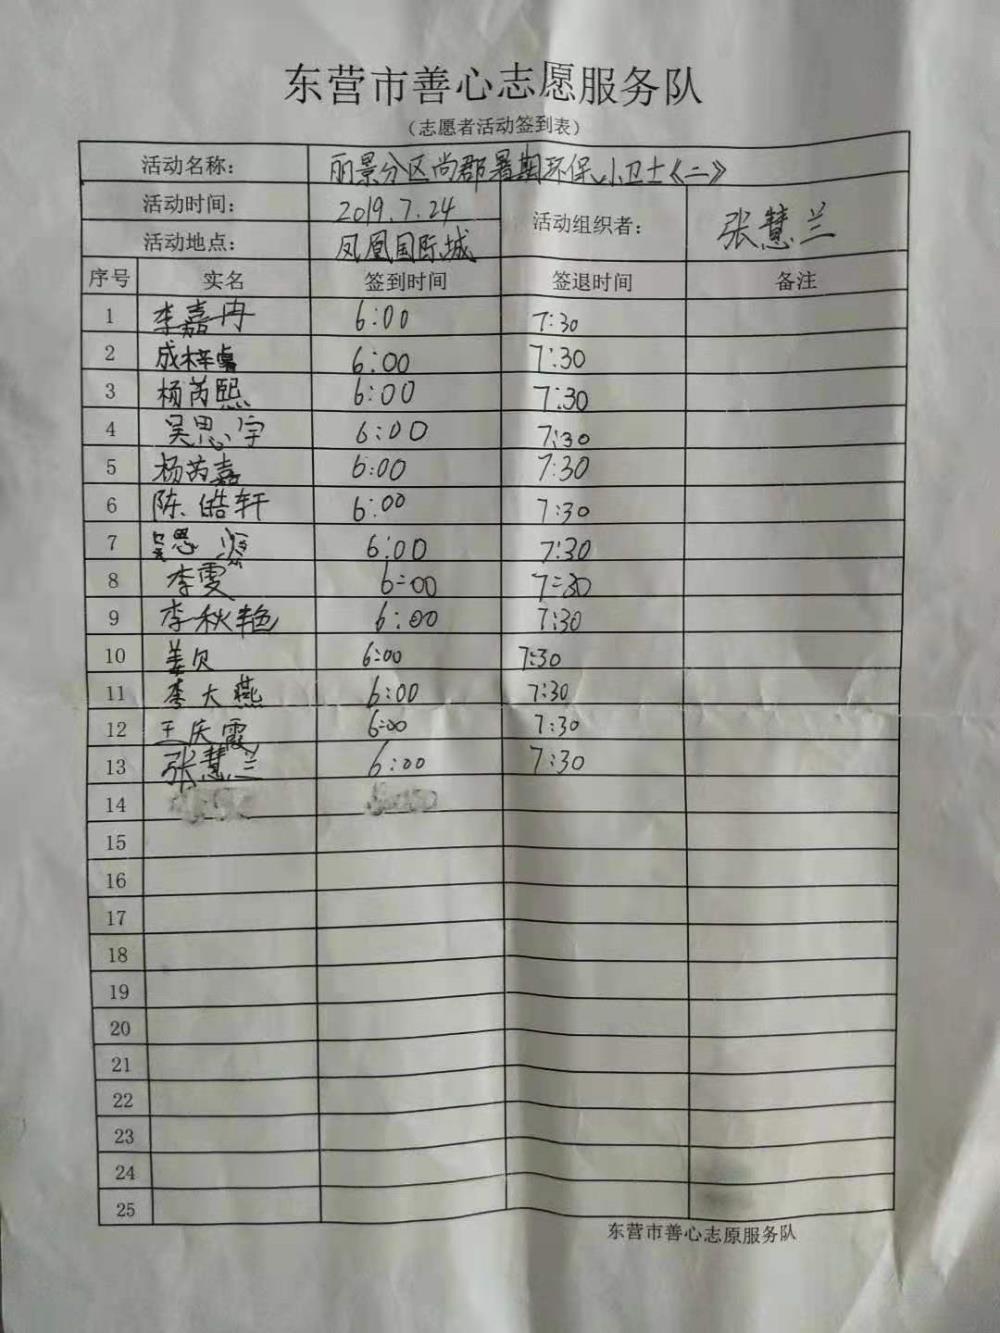 东营市善心志愿服务队
（志愿者活动签到表）
活动名称： 丽景分区尚郡暑期环保小卫士《二》
活动时间： 2019.7.24 活动组织者： 张慧兰
活动地点： 凤凰国际城
序号 实名 签到时间 签退时间 备注
1 李嘉冉 6:00 7:30
2 成梓 6:00 7:30
3 杨芮熙 6:00 7:30
4 吴思宇 6:00 7:30
5 杨芮嘉 6:00 7:30
6 陈皓轩 6:00 7:30
7 吴思 6:00 7:30
8 李雯 6:00 7:30
9 李秋艳 6:00 7:30
10 姜贝 6:00 7:30
11 李大燕 6:00 7:30
12 王庆霞 6:00 7:30
13 张慧兰 6:00 7:30
14
15
16
17
18
19
20
21
22
23
24
25
东营市善心志原服务队